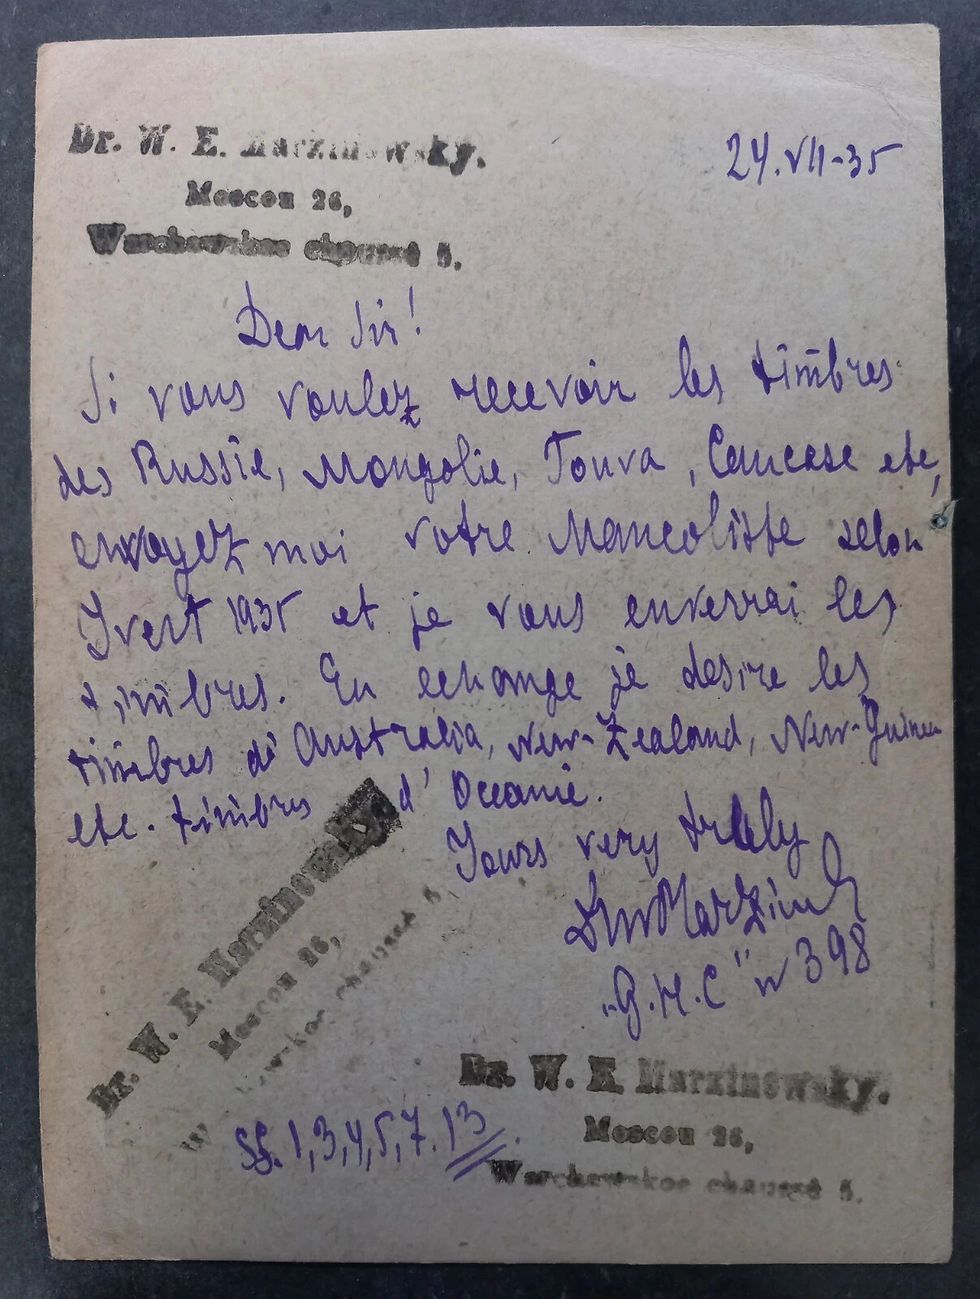 Dr. W. E. Marzinowsky.
Moscou 26,
Warchawskoe chaussé 5.
24.VII-35
Dear Sir!
Si vous voulez recevoir les timbres
des Russie, Mongolie, Touva, Caucase etc,
envoyez moi votre Mancoliste selon
Yvert 1935 et je vous enverrai les
timbres. En echange je desire les
timbres d'Australia, New-Zealand, New-Guinea
etc. timbres d'Oceanie.
Yours very truly
Marzin
"G.H.C" N 398
Dr. W. E. Marzinowsky.
Moscou 26,
chaussé 5.
Dr. W. E. Marzinowsky.
Moscou 26,
Warchawskoe chaussé 5.
§§. 1,3,4,5,7.13.